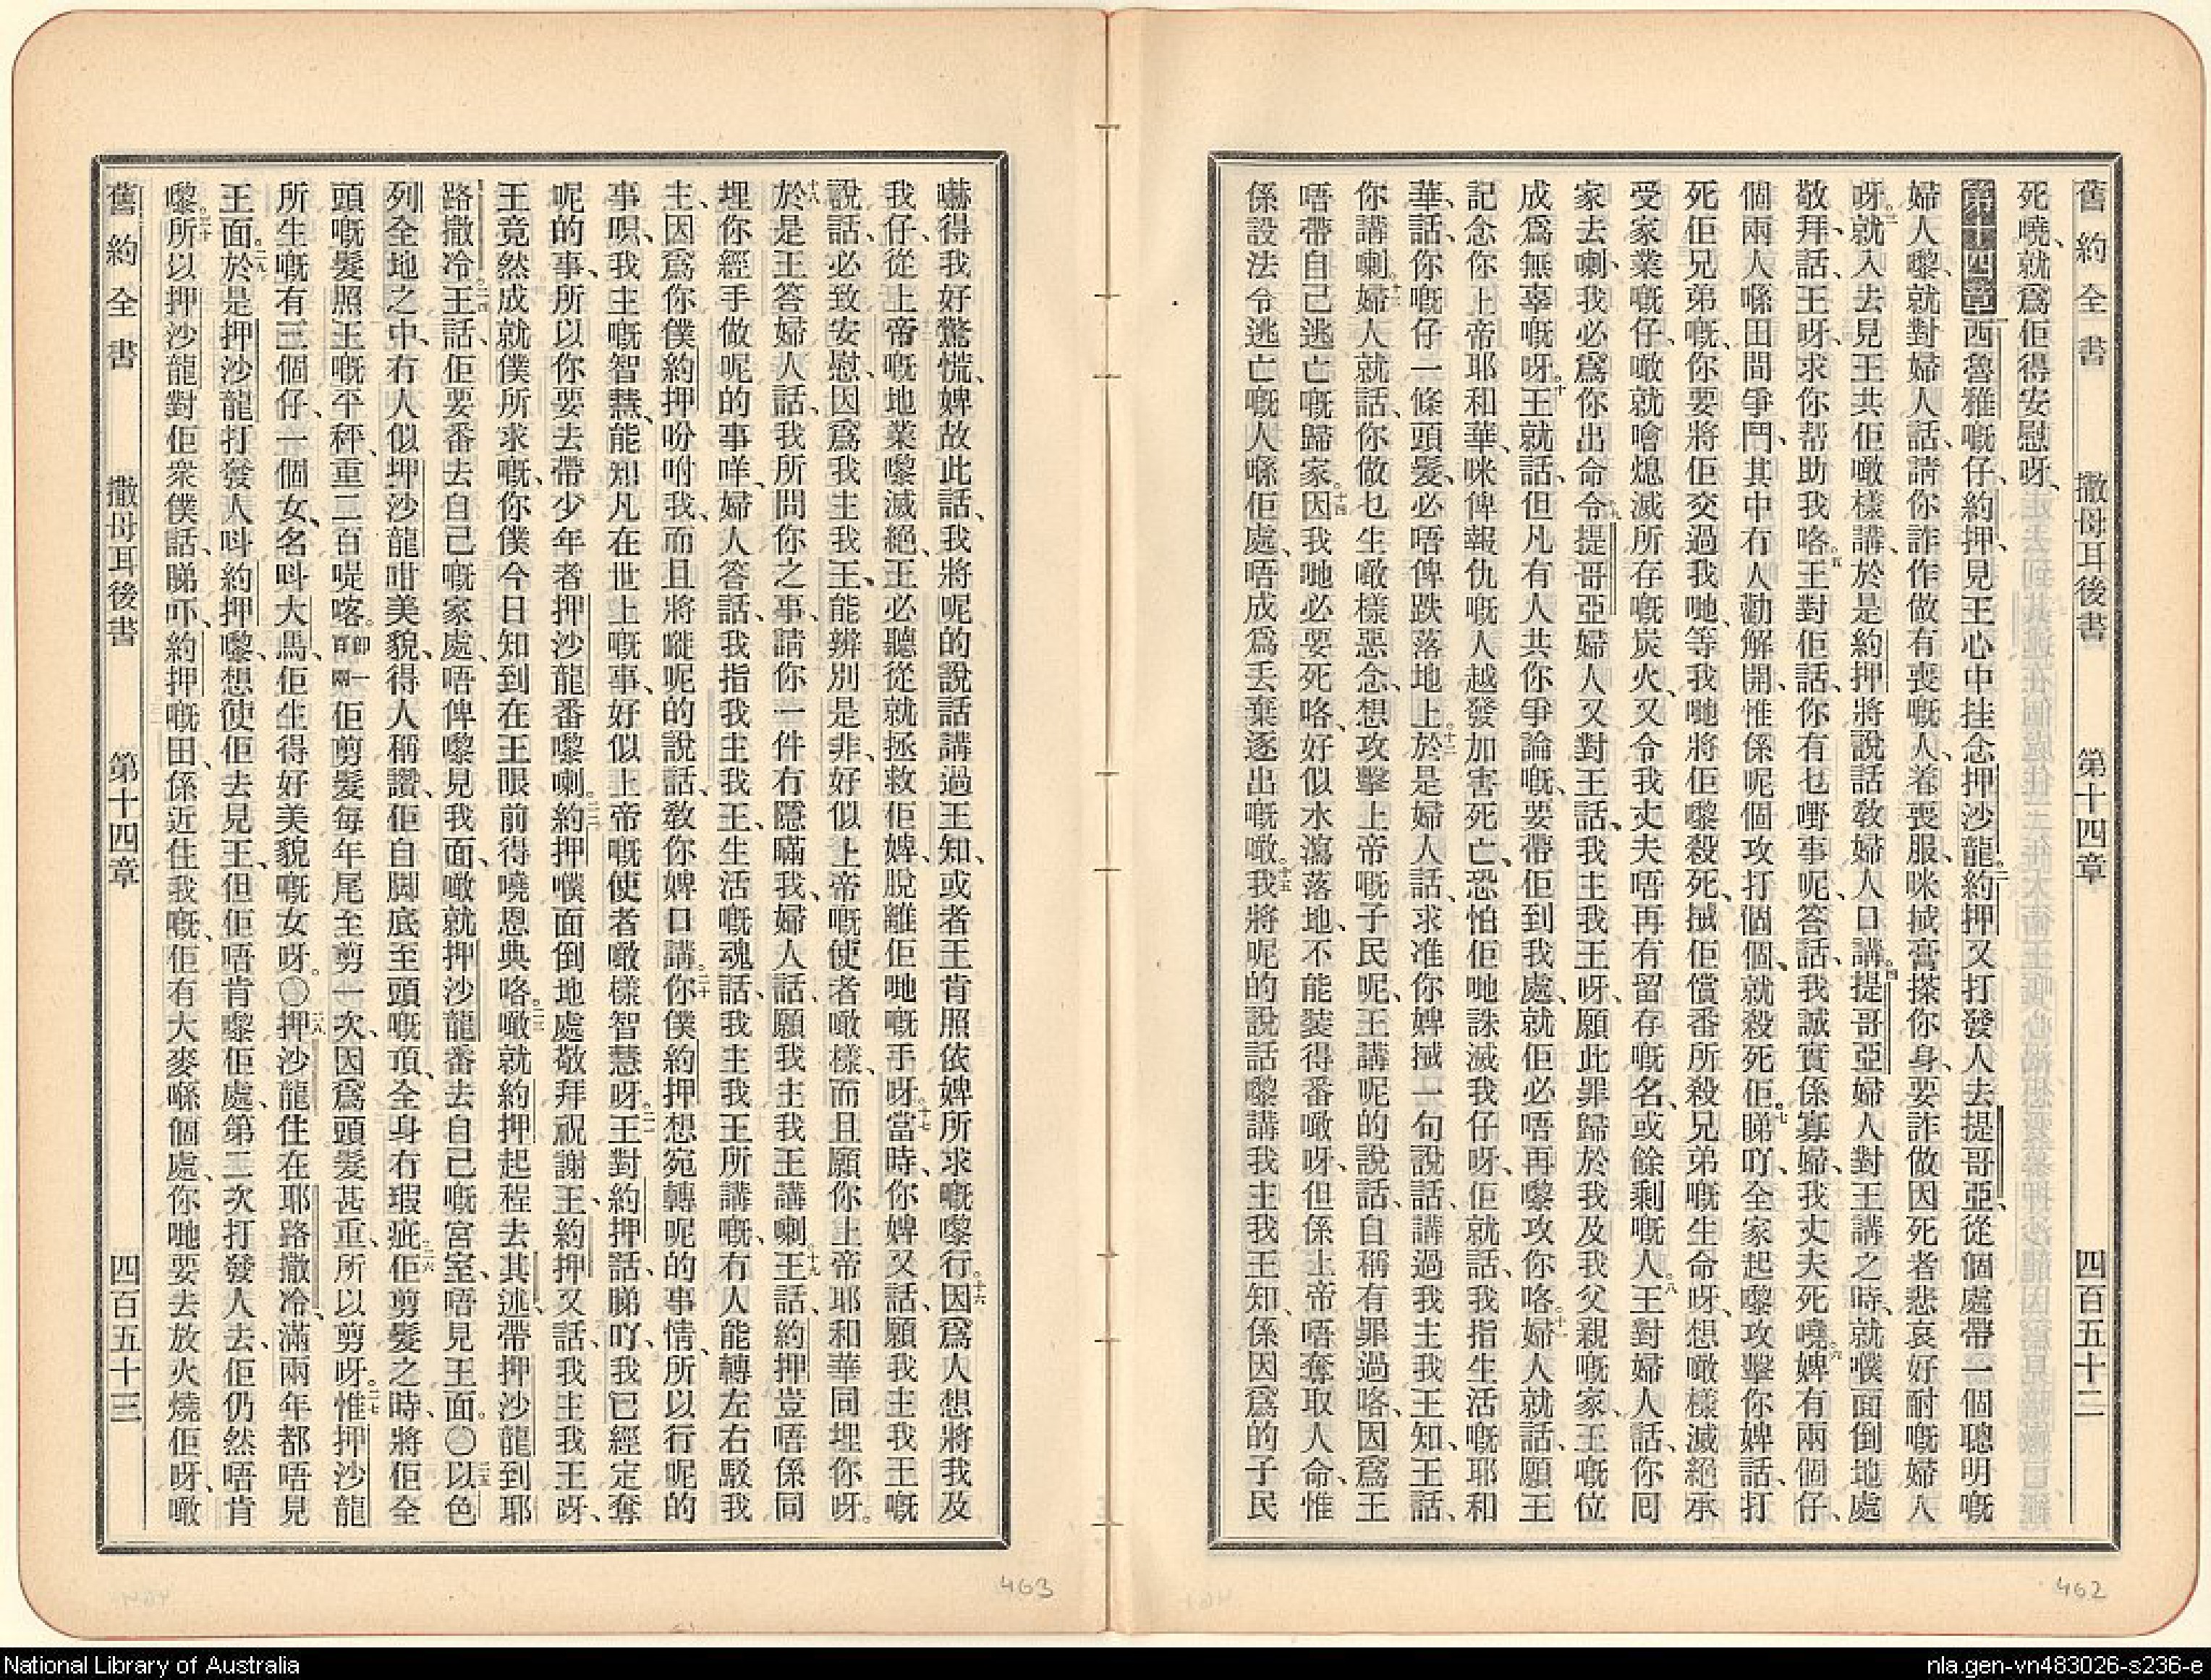 舊約全書 撒母耳後書 第十四章 四百五十二
死嘵、就爲佢得安慰呀、
第十四章 一西魯雅嘅仔、約押、見王心中挂念押沙龍。二約押又打發人去提哥亞、從個處帶一個聰明嘅
婦人嚟、就對婦人話、請你詐作做有喪嘅人、着喪服、咪搣膏搽你身、要詐做因死者悲哀好耐嘅婦人
呀。三就入去見王共佢噉樣講、於是約押將說話敎婦人口講。四提哥亞婦人對王講之時、就僕面倒地處
敬拜、話、王呀、求你帮助我咯。五王對佢話、你有乜嘢事呢、答話、我誠實係寡婦、我丈夫死嘵。六婢有兩個仔、
個兩人喺田問爭鬥、其中冇人勸解開、惟係呢個攻打個個、就殺死佢。七睇吖、全家起嚟攻擊你婢、話、打
死佢兄弟嘅、你要將佢交過我哋、等我哋將佢嚟殺死、搣佢償番所殺兄弟嘅生命呀、想噉樣滅絕承
受家業嘅仔、噉就噲熄滅所存嘅炭火、又令我丈夫唔再有留存嘅名、或餘剩嘅人。八王對婦人話、你囘
家去喇、我必爲你出命令。九提哥亞婦人又對王話、我主我王呀、願此罪歸於我及我父親嘅家、王嘅位
成爲無辜嘅呀。十王就話、但凡有人共你爭論嘅、要帶佢到我處、就佢必唔再嚟攻你咯。十一婦人就話、願王
記念你上帝耶和華、咪俾報仇嘅人越發加害死亡、恐怕佢哋誅滅我仔呀、佢就話、我指生活嘅耶和
華、話、你嘅仔一條頭髮、必唔俾跌落地上。十二於是婦人話、求准你婢搣一句說話、講過我主我王知、王話、
你講喇。十三婦人就話、你做乜生噉樣惡念、想攻擊上帝嘅子民呢、王講呢的說話、自稱有罪過咯、因爲王
唔帶自己逃亡嘅歸家。十四因我哋必要死咯、好似水瀉落地、不能裝得番噉呀、但係上帝唔奪取人命、惟
係設法令逃亡嘅人喺佢處、唔成爲丢棄逐出嘅噉。十五我將呢的說話嚟講我主我王知、係因爲的子民
嚇得我好驚慌、婢故此話、我將呢的說話講過王知、或者王肯照依婢所求嘅嚟行。十六因爲人想將我及
我仔、從上帝嘅地業嚟滅絕、王必聽從就拯救佢婢、脫離佢哋嘅手呀。十七當時、你婢又話、願我主我王嘅
說話、必致安慰、因爲我主我王、能辨別是非、好似上帝嘅使者噉樣、而且願你上帝耶和華同埋你呀。
十八於是王答婦人話、我所問你之事、請你一件冇隱瞞我、婦人話、願我主我王講喇。十九王話、約押豈唔係同
埋你經手做呢的事咩、婦人答話、我指我主我王、生活嘅魂話、我主我王所講嘅、冇人能轉左右駁我
主、因爲你僕約押吩咐我、而且將嗰呢的說話、敎你婢口講。二十你僕約押想宛轉呢的事情、所以行呢的
事唄、我主嘅智慧、能知凡在世上嘅事、好似上帝嘅使者噉樣智慧呀。二一王對約押話、睇吖、我已經定奪
呢的事、所以你要去帶少年者押沙龍番嚟喇。二二約押噗面倒地處敬拜祝謝王、約押又話、我主我王呀、
王竟然成就僕所求嘅、你僕今日知到在王眼前得嘵恩典咯。二三噉就約押起程去其述、帶押沙龍到耶
路撒冷。二四王話、佢要番去自己嘅家處、唔俾嚟見我面、噉就押沙龍番去自己嘅宮室、唔見王面。〇二五以色
列全地之中、冇人似押沙龍咁美貌、得人稱讚、佢自脚底至頭嘅頂、全身冇瑕疵。二六佢剪髮之時、將佢全
頭嘅髮照王嘅平秤、重二百嗁喀。卽一百兩佢剪髮每年尾至剪一次、因爲頭髮甚重、所以剪呀。二七惟押沙龍
所生嘅有三個仔、一個女、名呌大馬、佢生得好美貌嘅女呀。〇二八押沙龍住在耶路撒冷、滿兩年都唔見
王面。二九於是押沙龍打發人呌約押嚟、想使佢去見王、但佢唔肯嚟佢處、第二次打發人去、佢仍然唔肯
嚟。三十所以押沙龍對佢衆僕話、睇吖、約押嘅田、係近住我嘅、佢有大麥喺個處、你哋要去放火燒佢呀、噉
舊約全書 撒母耳後書 第十四章 四百五十三
463
462
National Library of Australia
nla.gen-vn483026-s236-e